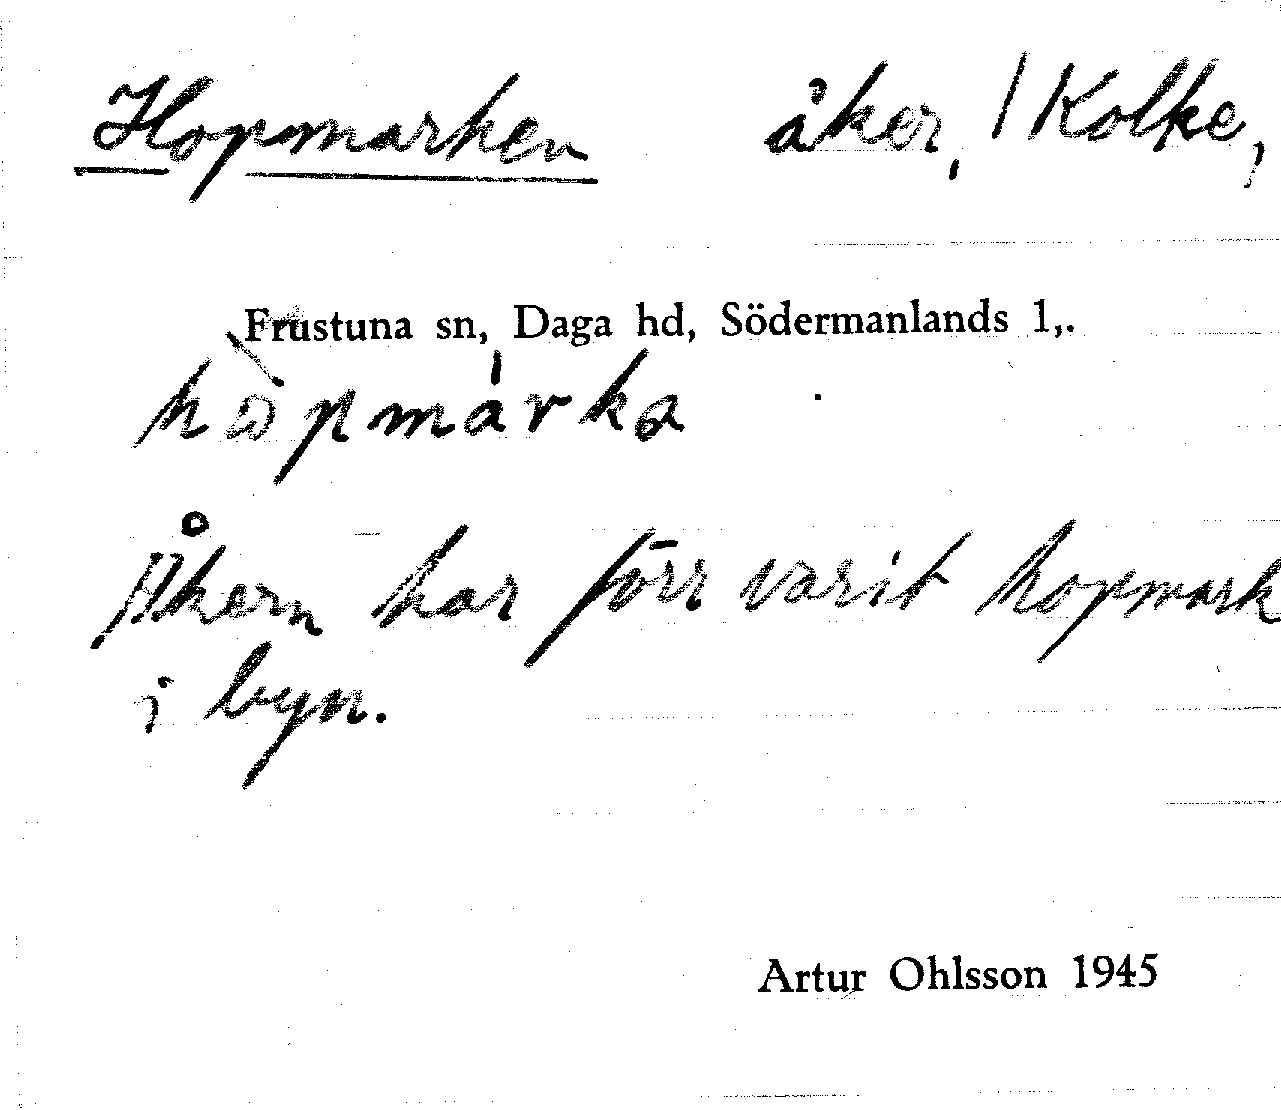 Hopmarken åker, / Kolke,
Frustuna sn, Daga hd, Södermanlands l,.
hòpmárka
Åkern har förr varit hopmark
i byn.
Artur Ohlsson 1945